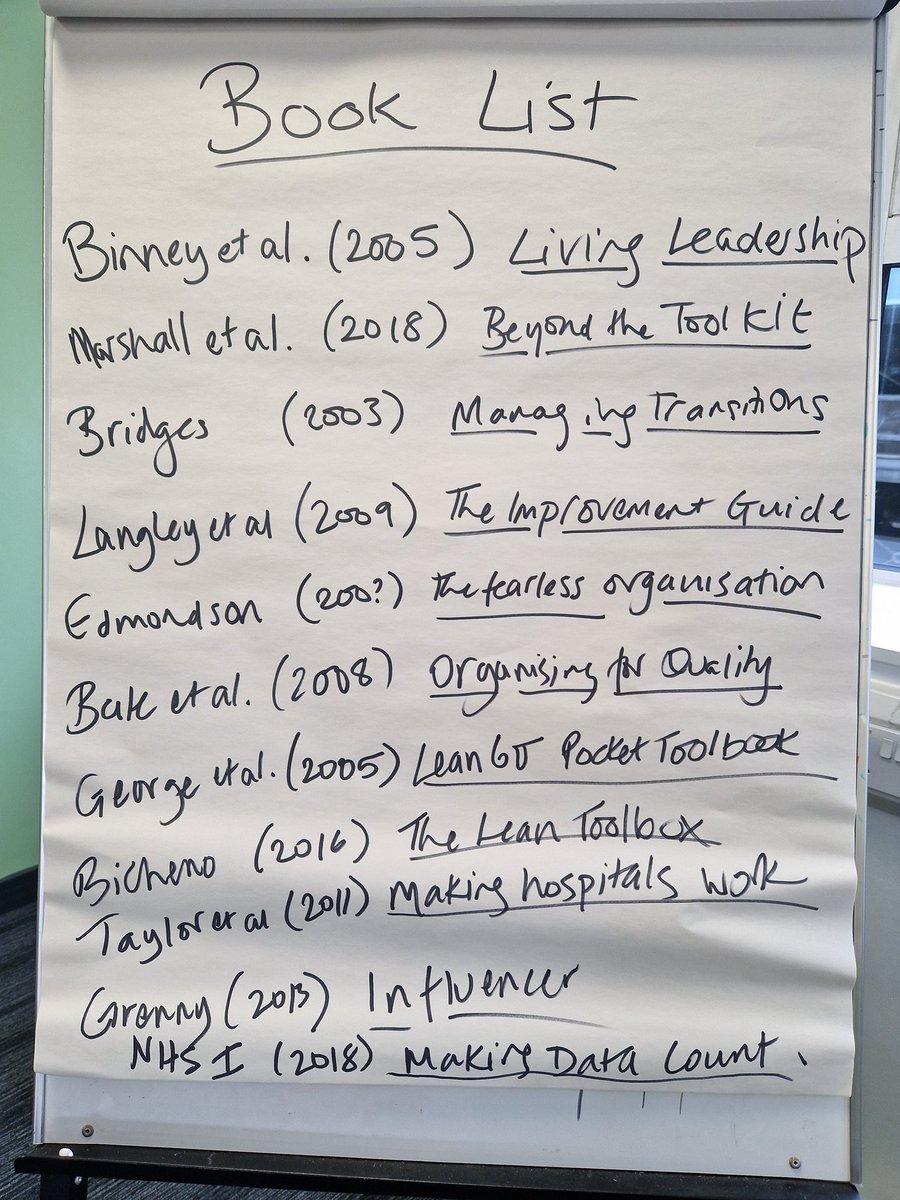 Book List
Binney et al. (2005) Living Leadership
Marshall et al. (2018) Beyond the Toolkit
Bridges (2003) Managing Transitions
Langley et al (2009) The Improvement Guide
Edmondson (200?) The fearless organisation
Bate et al. (2008) Organising for Quality
George et al. (2005) Lean 6σ Pocket Toolbook
Bicheno (2016) The Lean Toolbox
Taylor et al (2011) Making hospitals work
Grenny (2013) Influencer
NHS I (2018) Making Data Count.